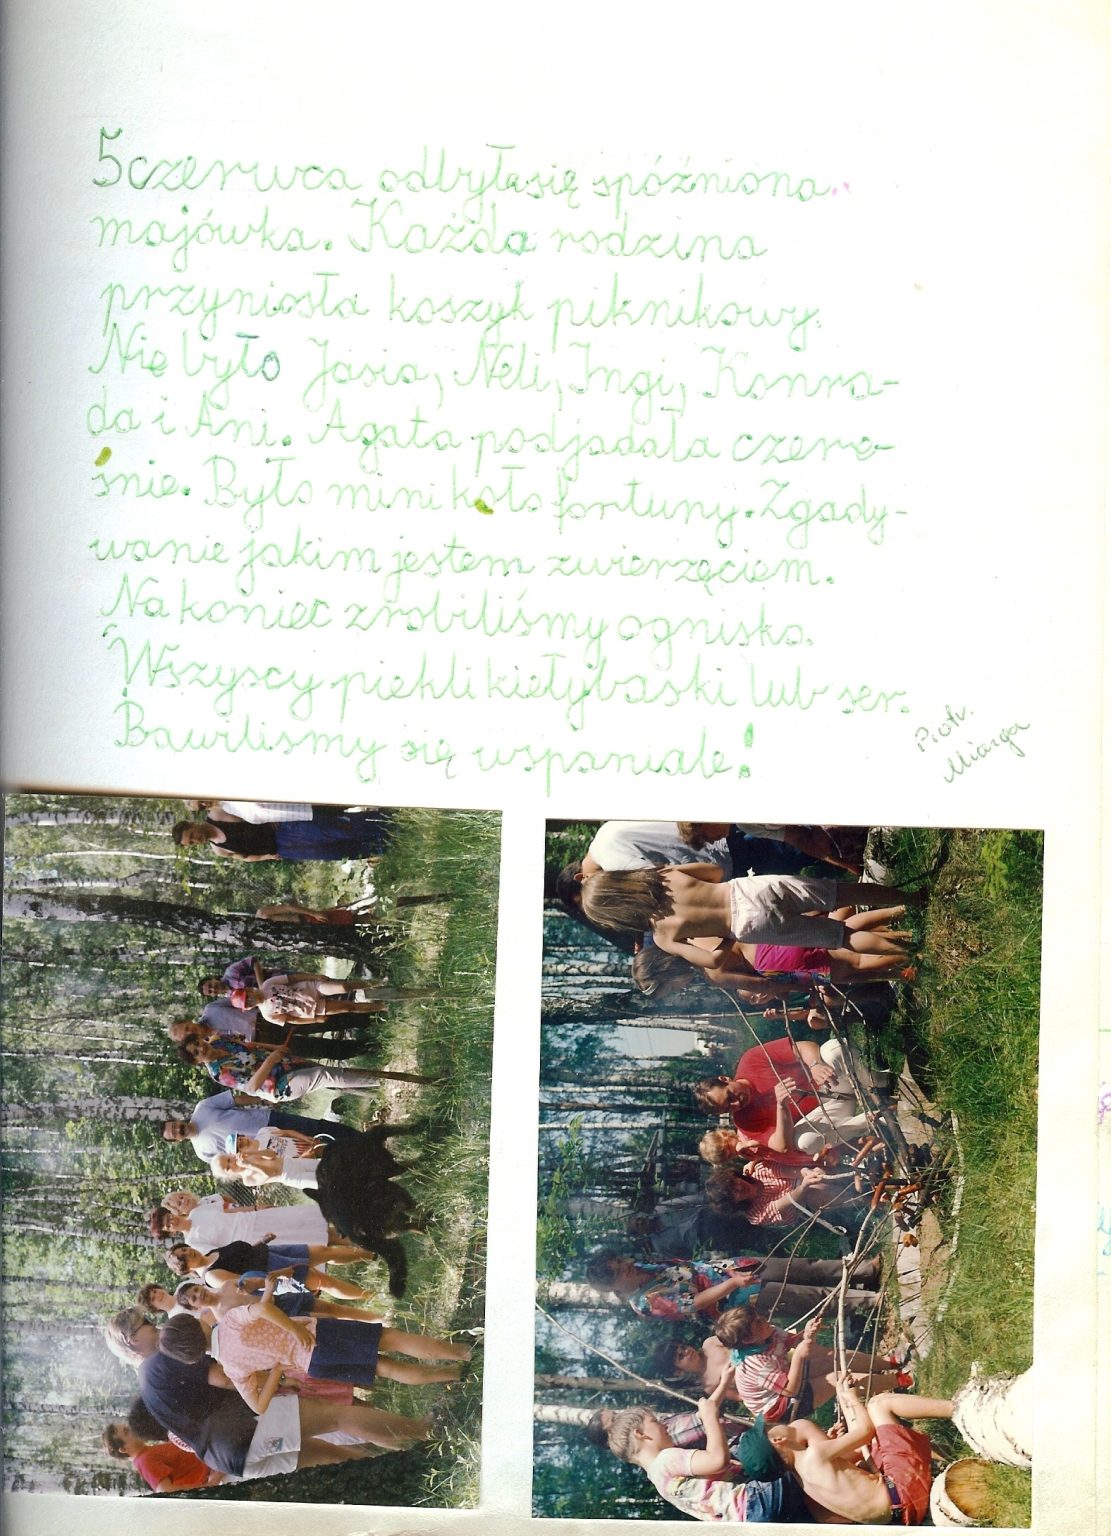 5 czerwca odbyła się spóźniona
majówka. Każda rodzina
przyniosła koszyk piknikowy.
Nie było Jasia, Neli, Ingi, Konra-
da i Ani. Agata podjadała czere-
śnie. Było mini koło fortuny. Zgady-
wanie jakim jestem zwierzęciem.
Na koniec zrobiliśmy ognisko.
Wszyscy piekli kiełybaski lub ser.
Bawiliśmy się wspaniale!
Piotr.
Miarga